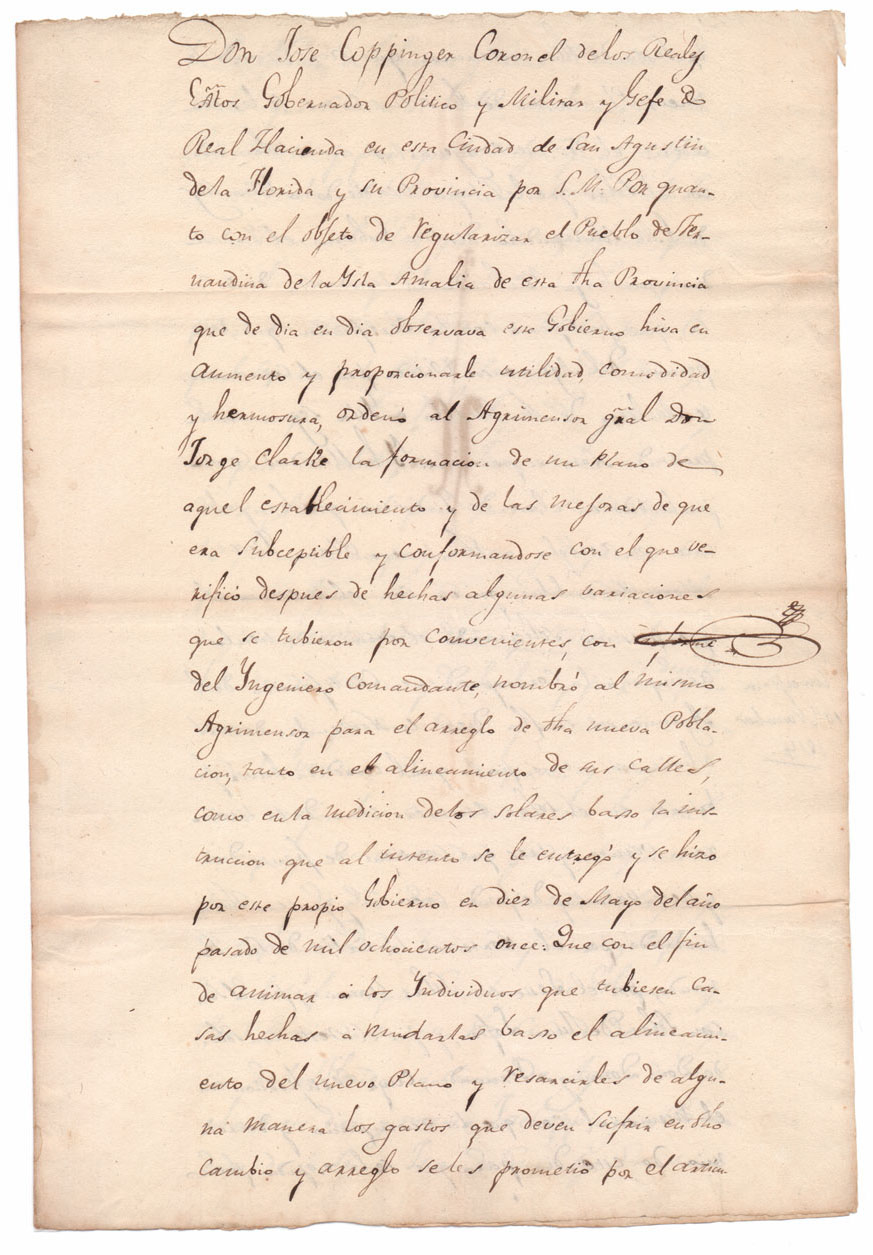 Don Jose Coppinger Coronel de los Reales
Extos Gobernador Politico y Militar y Gefe de
Real Hacienda en esta Ciudad de San Agustin
de la Florida y su Provincia por S. M. Por quan-
to con el objeto de regularizar el Pueblo de Fer-
nandina de la Ysla Amalia de esta dha Provincia
que de dia en dia observava este Gobierno hiva en
aumento y proporcionarle utilidad, comodidad
y hermosura, ordenó al Agrimensor gral Don
Jorge Clarke la formacion de un Plano de
aquel establecimiento y de las mejoras de que
era subceptible y conformandose con el que ve-
rificó despues de hechas algunas variaciones
que se tubieron por convenientes, con
del Yngeniero Comandante, nombró al mismo
Agrimensor para el arreglo de dha nueva Pobla-
cion, tanto en el alineamiento de sus calles,
como en la medicion de los solares baxo la ins-
truccion que al intento se le entregó y se hizo
por este propio Gobierno en diez de Mayo del año
pasado de mil ochocientos once: Que con el fin
de animar á los Yndividuos que tubiesen Ca-
sas hechas á mudarlas baxo el alineami-
ento del nuevo Plano y resarcirles de algu-
na manera los gastos que deven sufrir en dho
cambio y arreglo se les prometió por el articu-